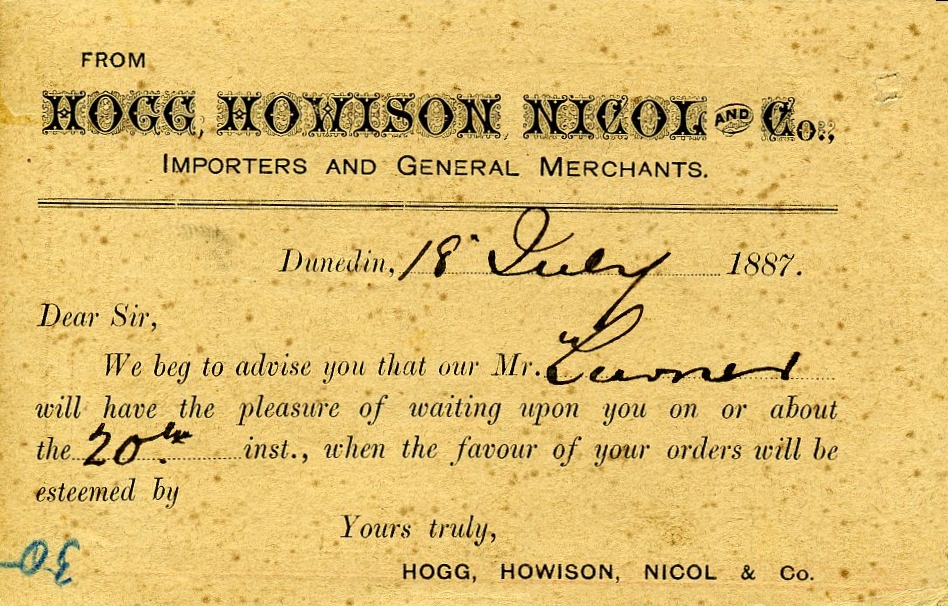 FROM
HOGG, HOWISON NICOL AND Co.,
IMPORTERS AND GENERAL MERCHANTS.
Dunedin, 18 July 1887.
Dear Sir,
We beg to advise you that our Mr.
will have the pleasure of waiting upon you on or about
the 20th inst., when the favour of your orders will be
esteemed by
Yours truly,
HOGG, HOWISON, NICOL & Co.